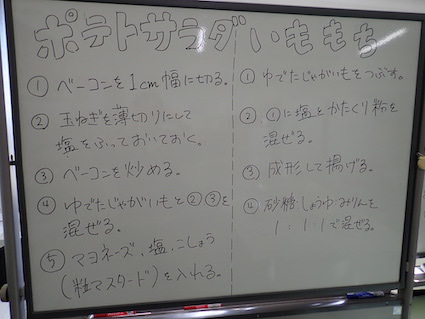 ポテトサラダ
① ベーコンを1cm幅に切る。
② 玉ねぎを薄切りにして
塩をふっておいておく。
③ ベーコンを炒める。
④ ゆでたじゃがいもと②③を
混ぜる。
⑤ マヨネーズ、塩、こしょう
(粒マスタード)を入れる。
いももち
① ゆでたじゃがいもをつぶす。
② ①に塩とかたくり粉を
混ぜる。
③ 成形して揚げる。
④ 砂糖:しょうゆ:みりんを
1:1:1で混ぜる。